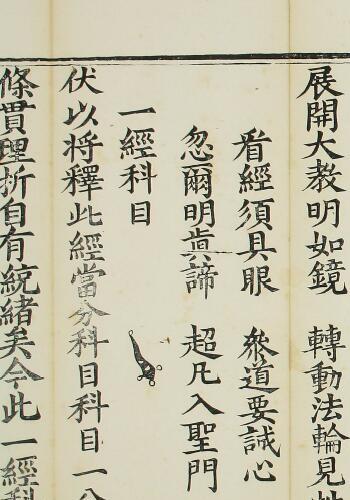 展開大教明如鏡　轉動法輪見
看經須具眼　叅道要誠心
忽爾明真諦　超凡入聖門
一經科目
伏以将釋此經當分科目科目一
條貫理折自有統緒矣今此一經科